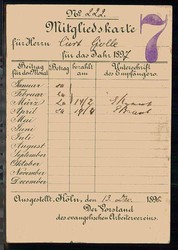 No. 222.
7
Mitgliedskarte
für Herrn Curt Golle
für das Jahr 1897.
Beitrag für den Monat Betrag bezahlt am Unterschrift des Empfängers.
Januar 20
Februar 20
März 20 14/2
April 20 19/4
Mai
Juni
Juli
August
September
Oktober
November
December
Ausgestellt, Köln, den 13. 189
Der Vorstand
des evangelischen Arbeitervereins.